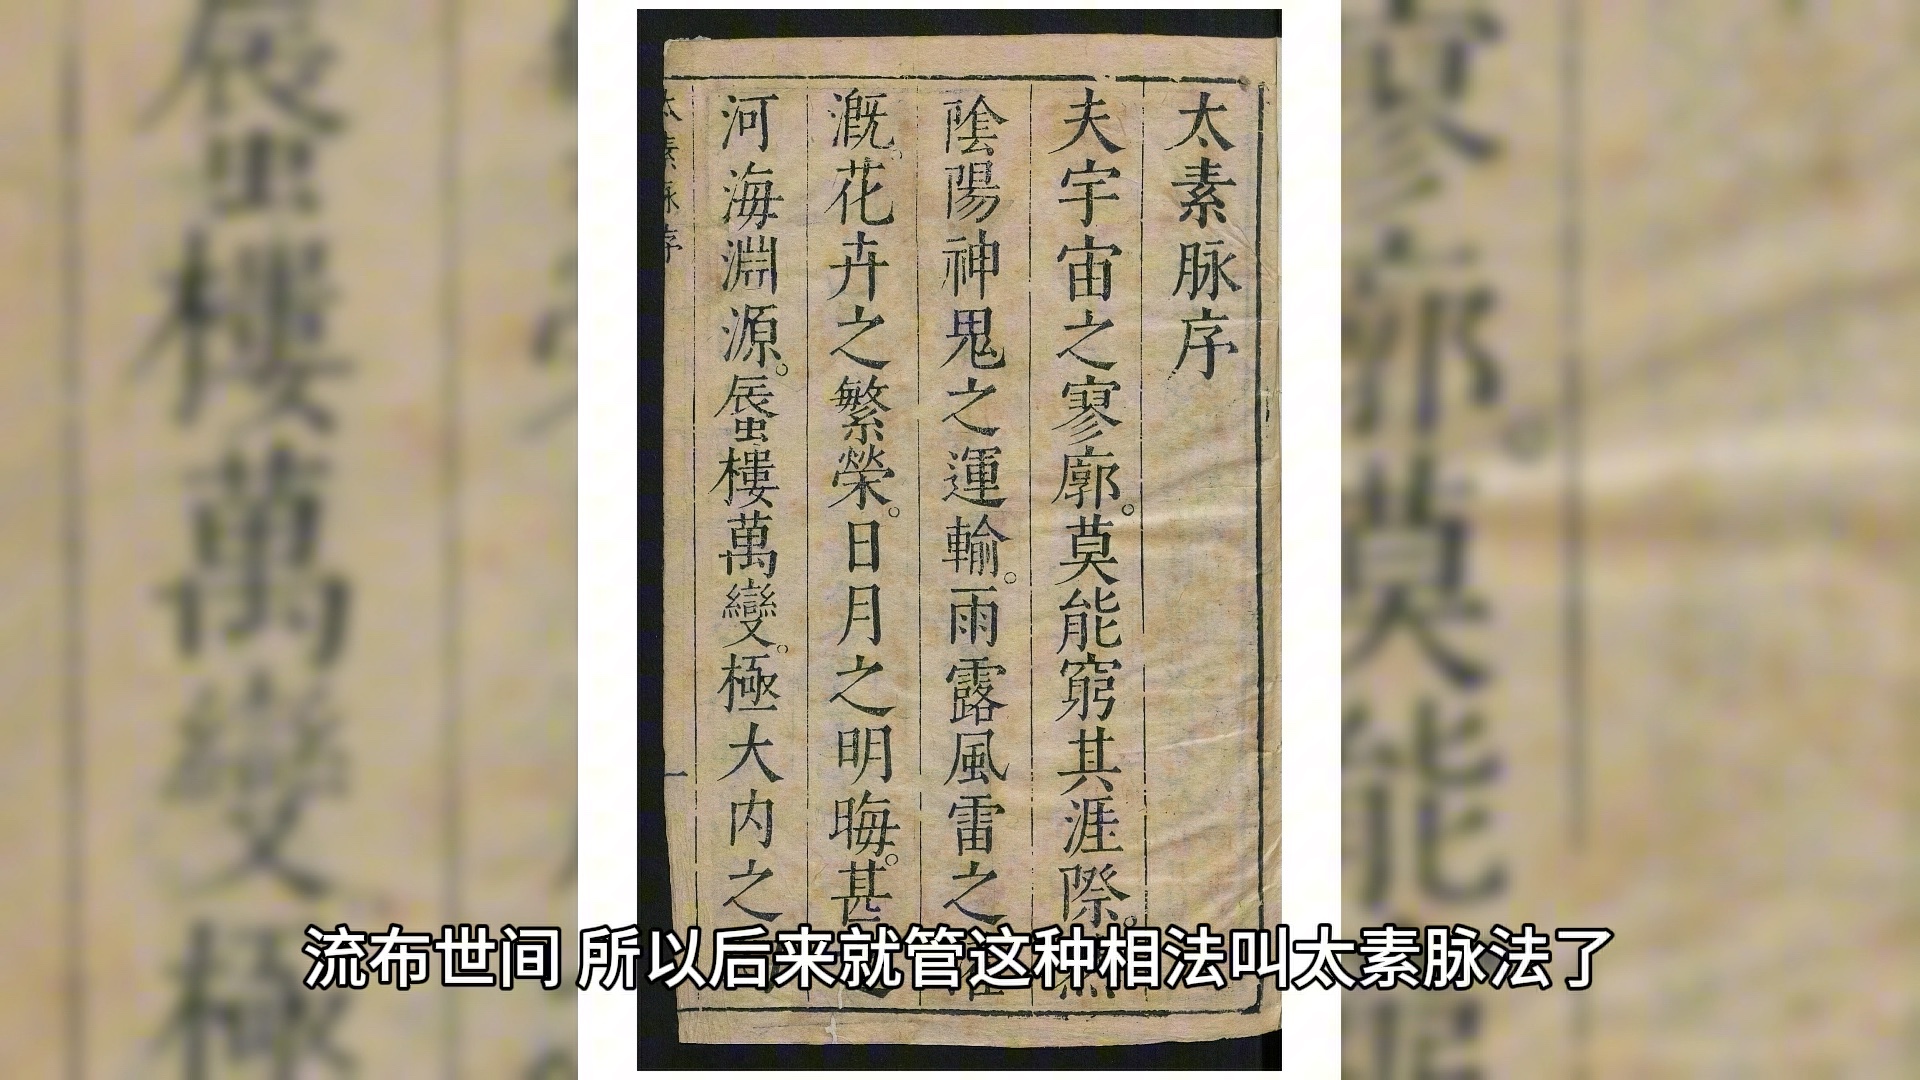 太素脉序
夫宇宙之寥廓。莫能窮其涯際。
陰陽神鬼之運輸。雨露風雷之
溉。花卉之繁榮。日月之明晦。甚
河海淵源。蜃樓萬變。極大内之
太素脉序
一
流布世间 所以后来就管这种相法叫太素脉法了